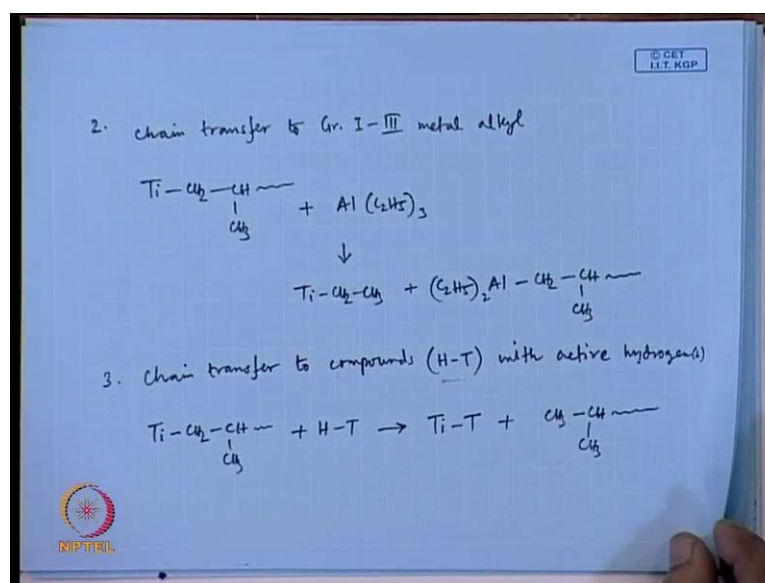 © CET
I.I.T. KGP
2. chain transfer to Gr. I-III metal alkyl
Ti-CH2-CH~~~ + Al(C2H5)3
CH3
↓
Ti-CH2-CH3 + (C2H5)2Al-CH2-CH~~~
CH3
3. Chain transfer to compounds (H-T) with active hydrogen(s)
Ti-CH2-CH~ + H-T → Ti-T + CH3-CH~~~
CH3 CH3
NPTEL